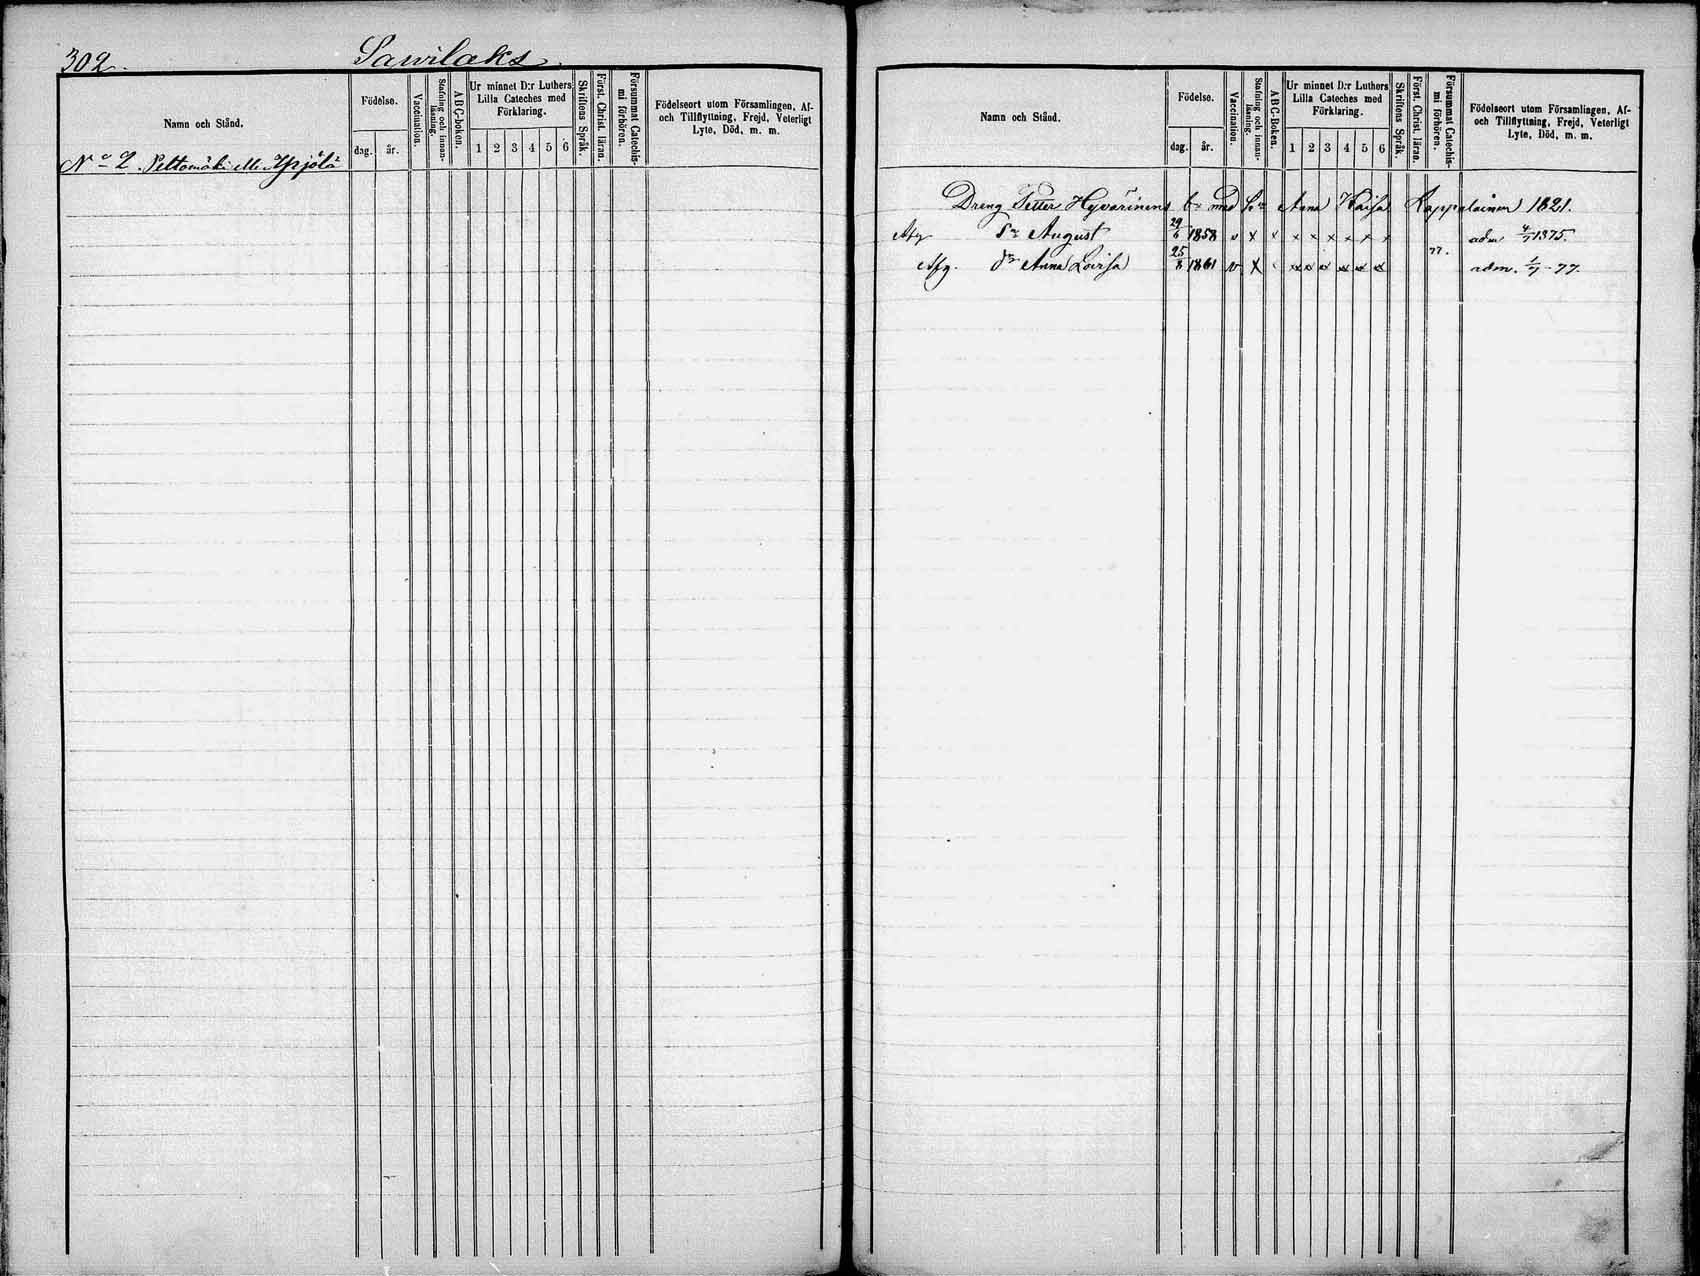 302.
Sawilaks.
Namn och Stånd.
Födelse.
dag.
år.
Vaccination.
Stafning och innanläsning.
ABC-boken.
Ur minnet D:r Luthers Lilla Cateches med Förklaring.
1 2 3 4 5 6
Skriftens Språk.
Först. Christ. läran.
Försummat Catechismi förhören.
Födelseort utom Församlingen, Af- och Tillflyttning, Frejd, Veterligt Lyte, Död, m. m.
No 2. Peltomäki
Namn och Stånd.
Födelse.
dag.
år.
Vaccination.
Stafning och innanläsning.
ABC-Boken.
Ur minnet D:r Luthers Lilla Cateches med Förklaring.
1 2 3 4 5 6
Skriftens Språk.
Först. Christ. läran.
Försummat Catechismi förhören.
Födelseort utom Församlingen, Af- och Tillflyttning, Frejd, Veterligt Lyte, Död, m. m.
Dreng Petter Hyvärinens b. med h:u Anna Kaisa Lappalainen 1821.
Afg Sn August 29/6 1858 v x x x x x x x x adm 4/7 1875.
Afg. dr Anna Lovisa 25/8 1861 v x x x x x x x 77. adm. 1/7 -77.